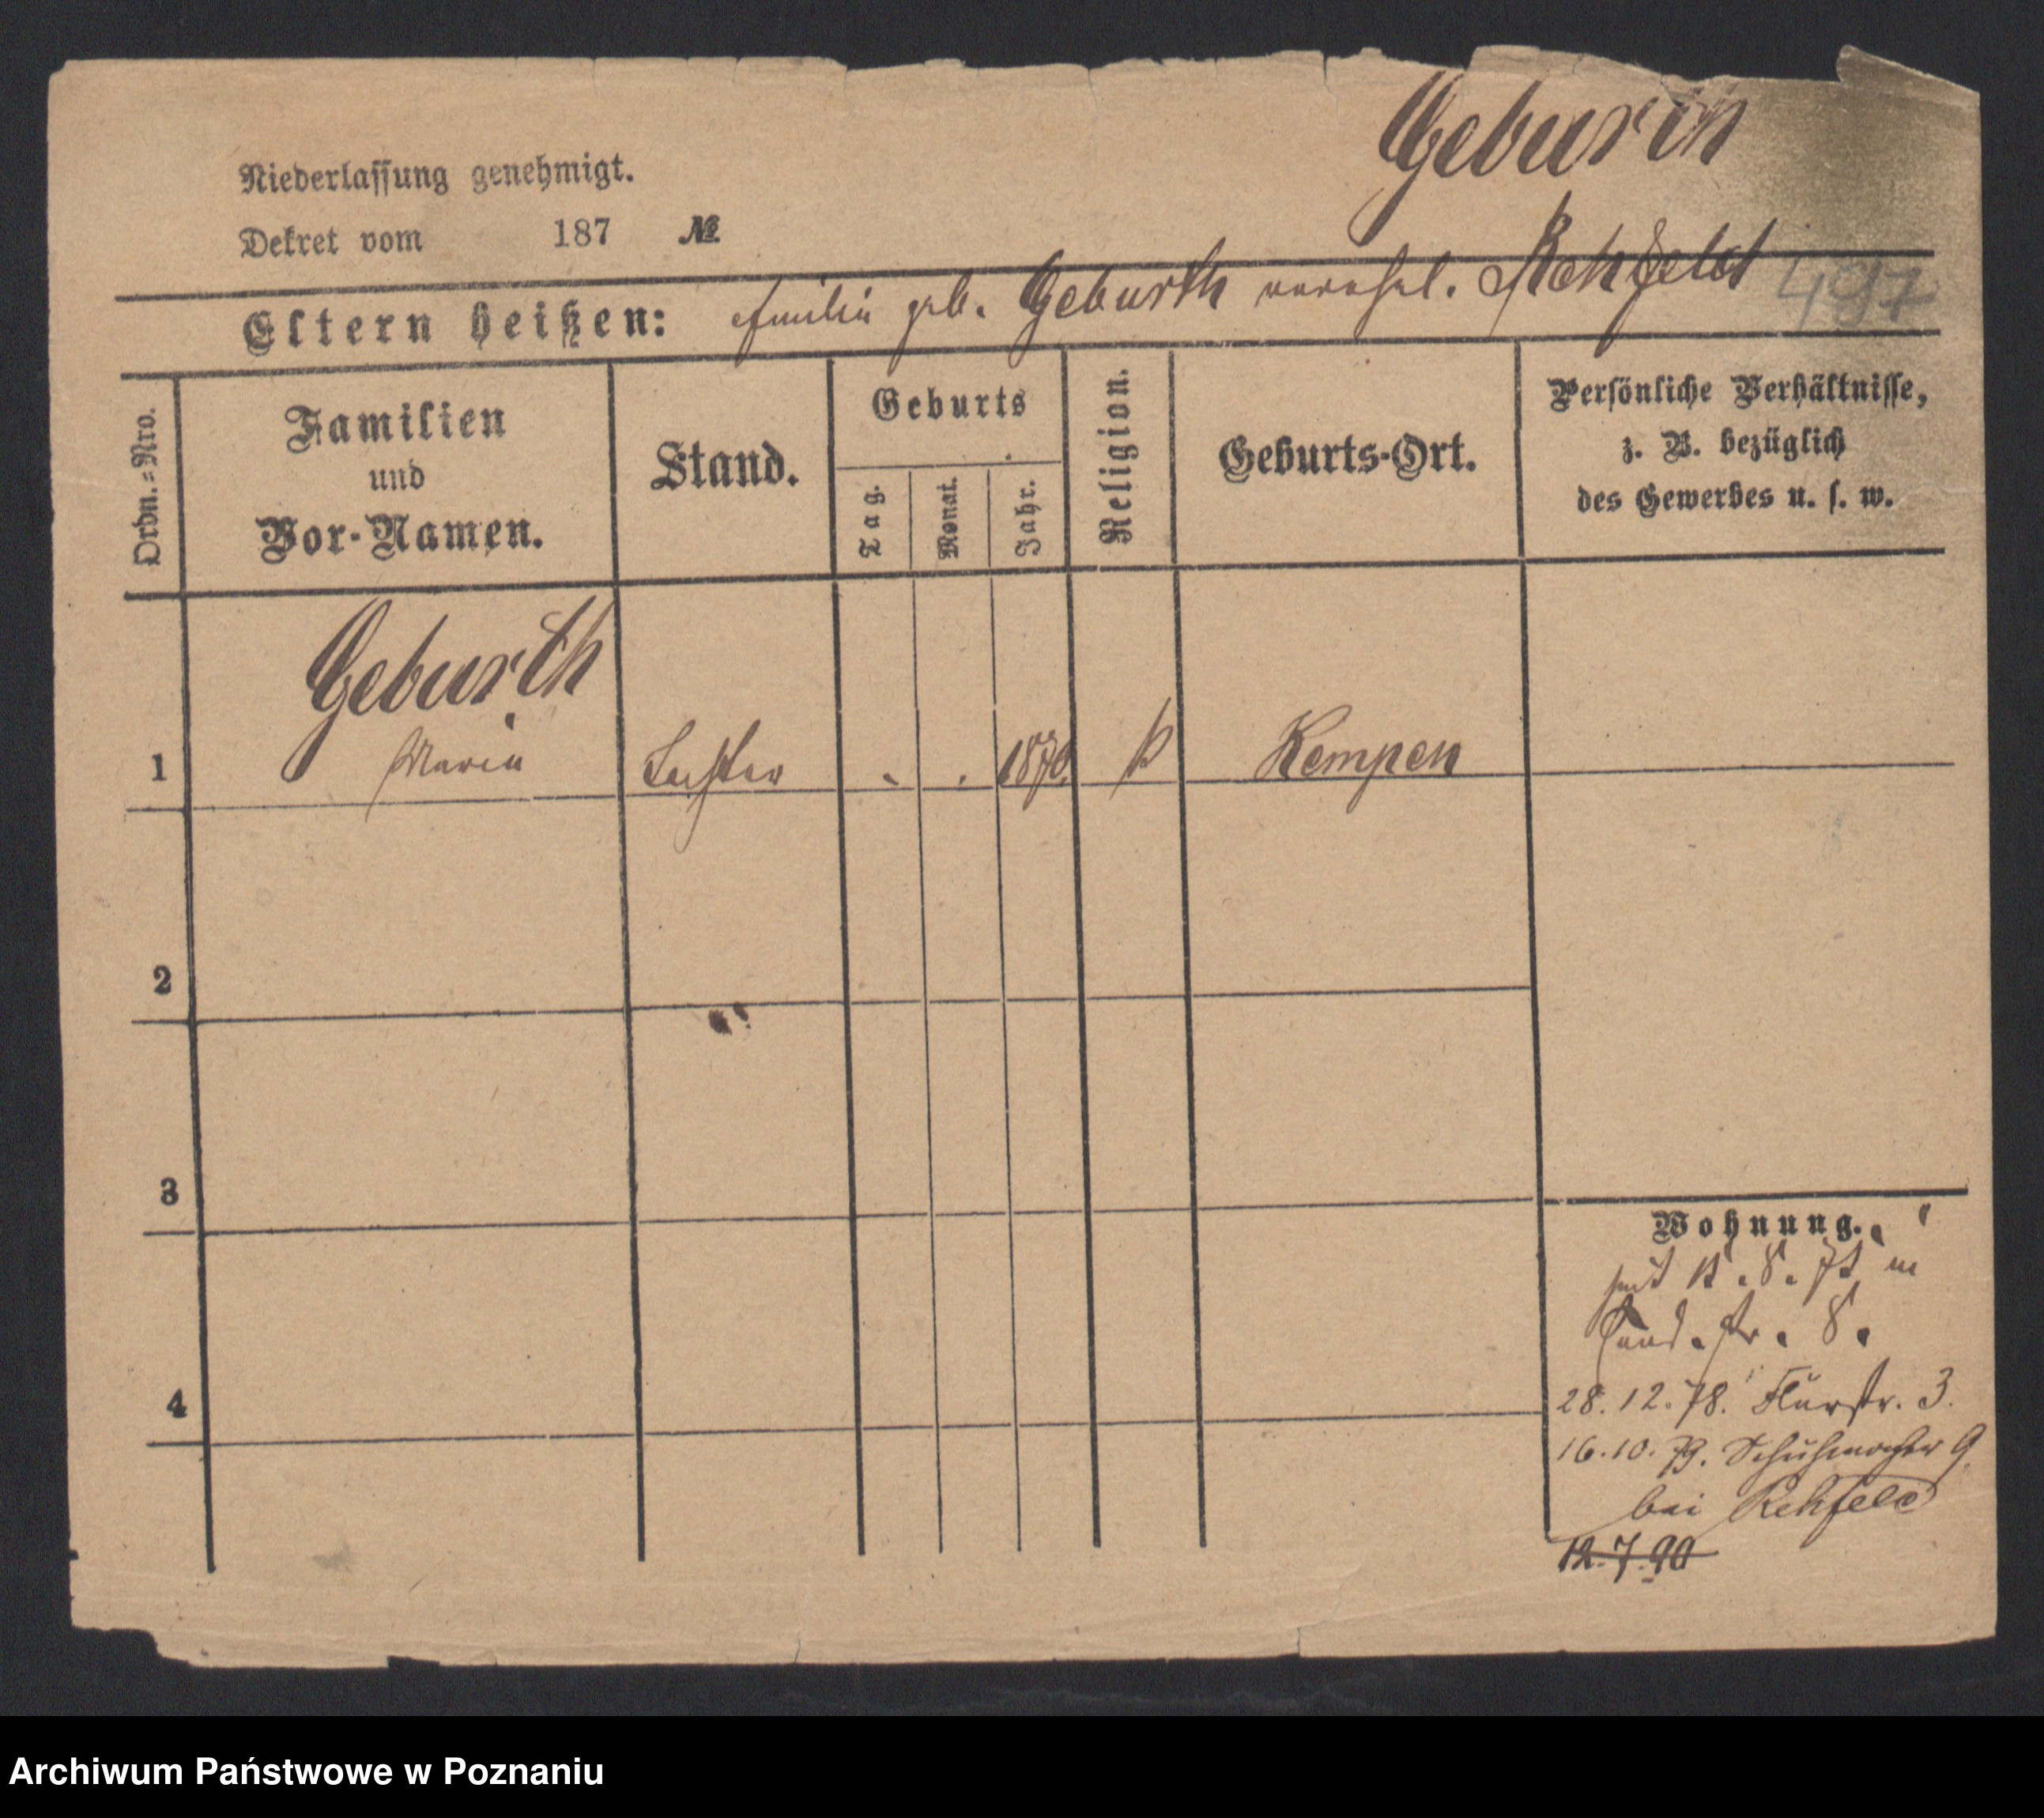 Geburth
Niederlassung genehmigt.
Dekret vom 187 №
Eltern heißen: Emilie geb. Geburth verehel. Rehfeld 497
Ordn.-Nro.
Familien
und
Vor-Namen.
Stand.
Geburts
Tag.
Monat.
Jahr.
Religion.
Geburts-Ort.
Persönliche Verhältnisse,
z. B. bezüglich
des Gewerbes u. s. w.
Geburth
1 Maria Tochter 1870. Kempen
2
3
4
Wohnung.
seit 8.
str. 8.
28.12.78. Flurstr. 3.
16.10.79. Schuhmacher 9.
bei Rehfeld
12.7.90
Archiwum Państwowe w Poznaniu